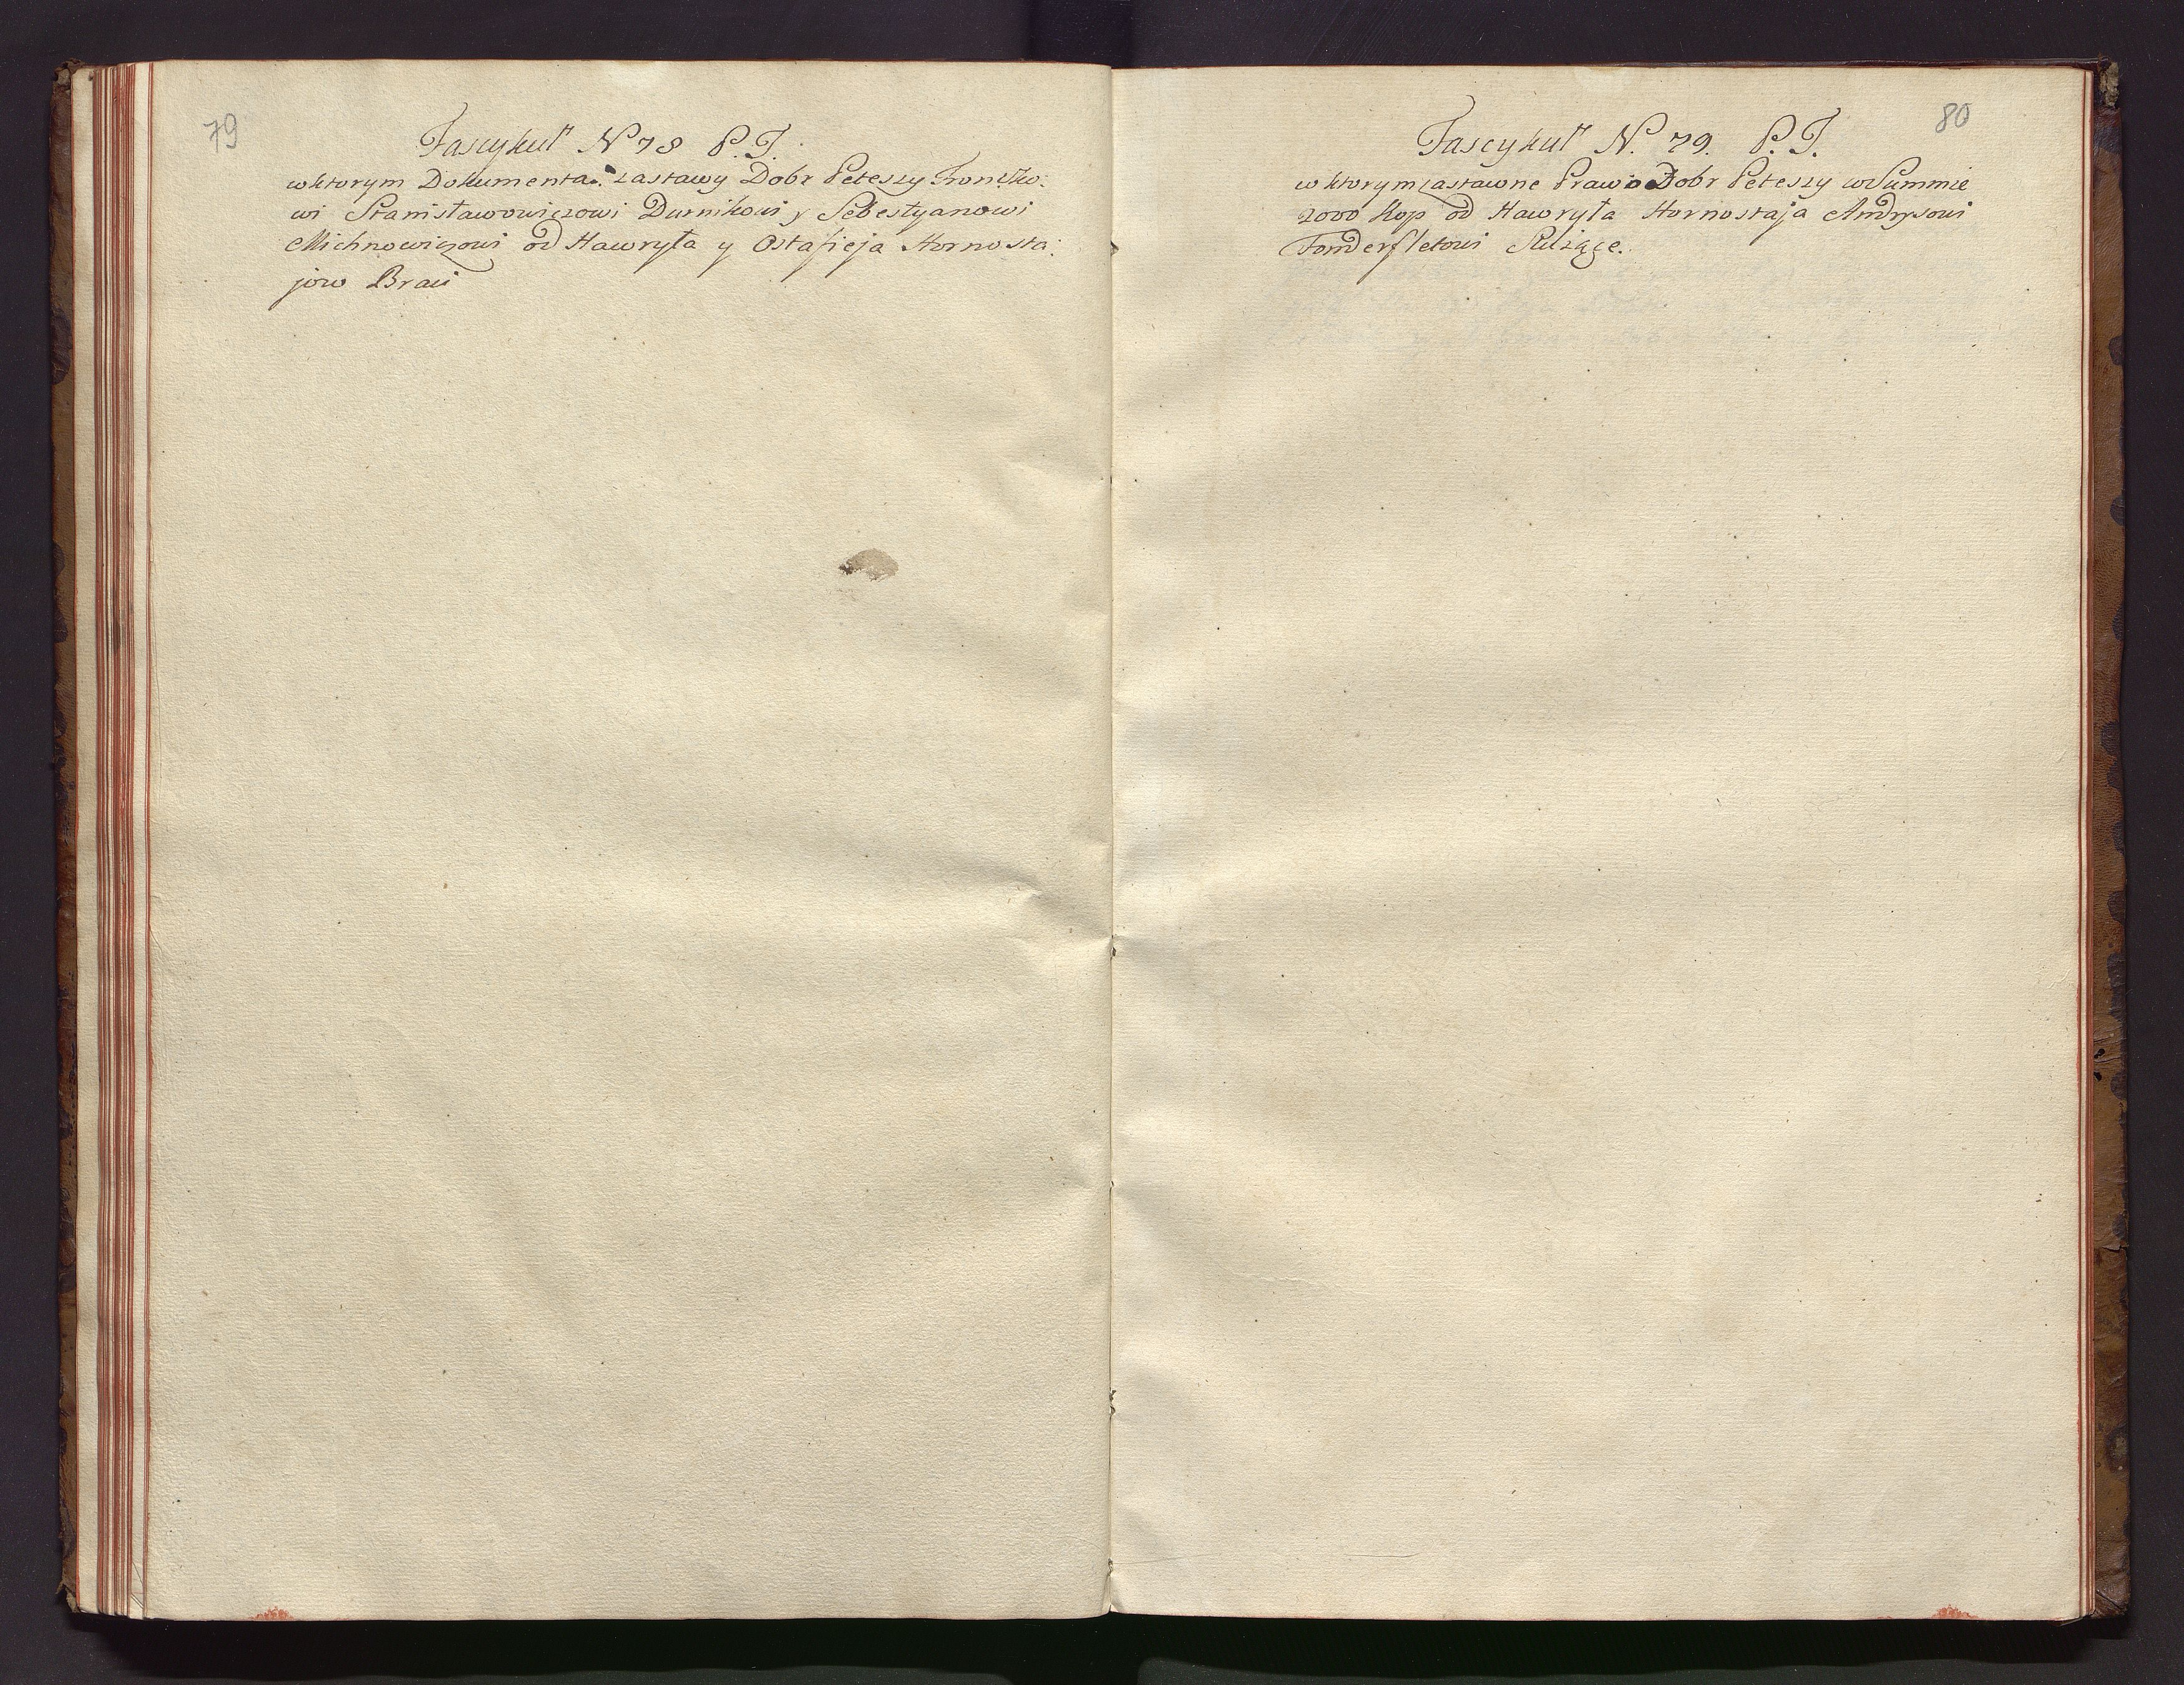 79
Fascykuł N 78 P. J.
w ktorym Dokumenta zastawy Dobr Peteszy
wi Stanisławowiczowi Durnikowi y Sebestyanowi
Michnowiczowi od Hawryła y Ostafieja Hornosta:
jow Braci
80
Fascykuł N. 79. P. J.
w ktorym zastawne Prawo Dobr Peteszy w Summie
2000 Kop od Hawryła Hornostaja Andrysowi
Fonderfletowi Służące.